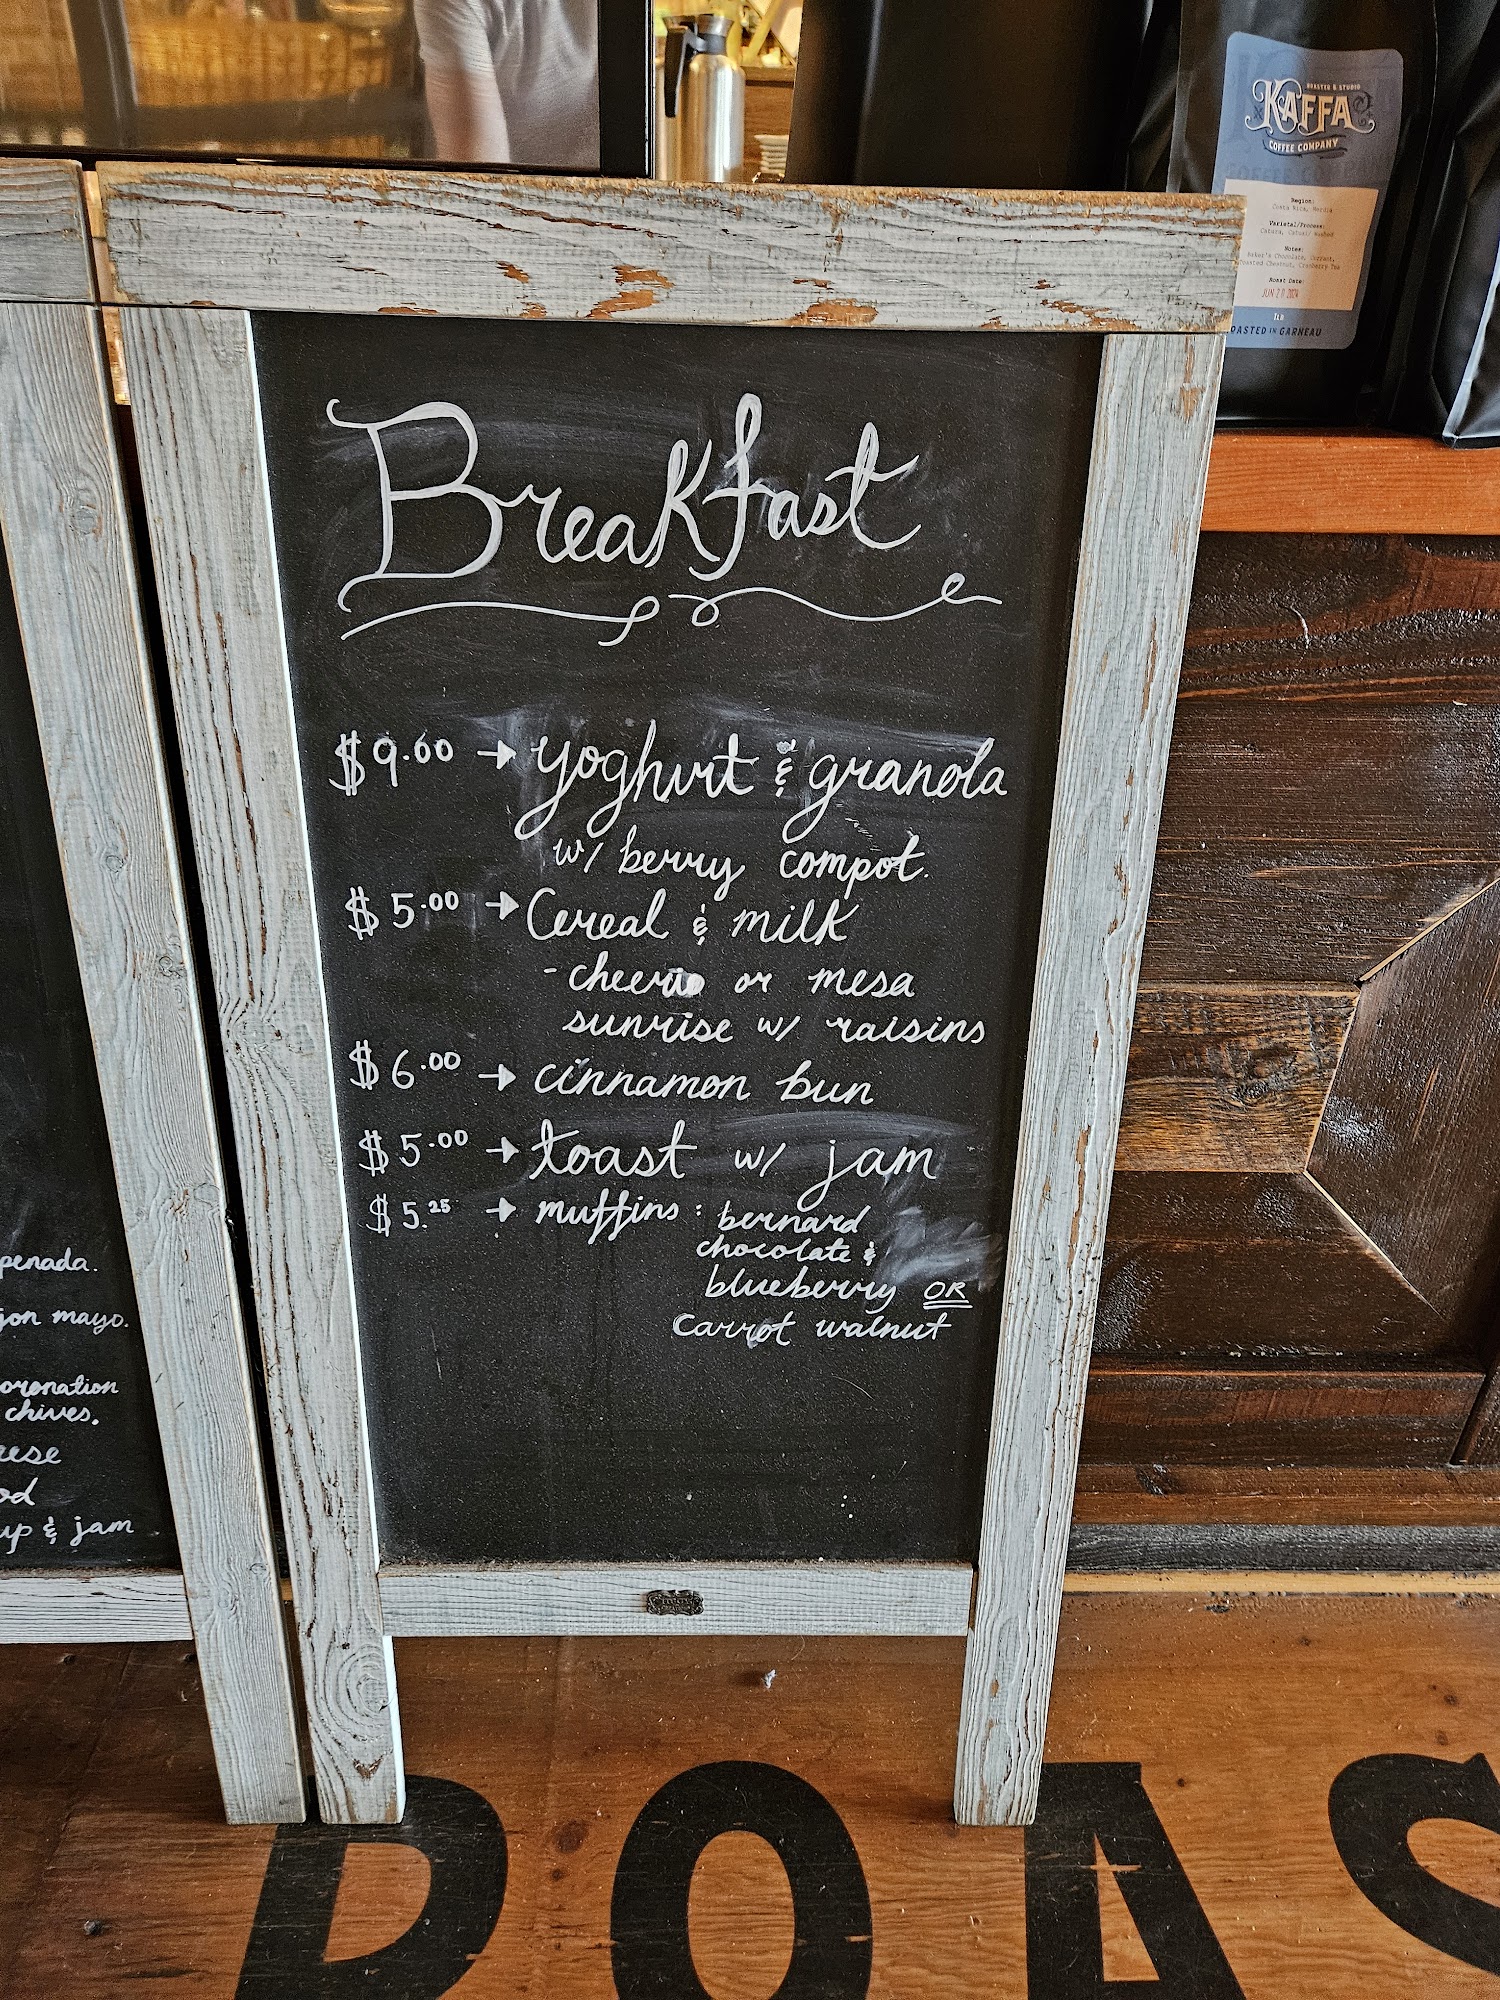 Breakfast
$9.00 → yoghurt & granola
w/ berry compot.
$5.00 → Cereal & milk
- cheerio or mesa
sunrise w/ raisins
$6.00 → cinnamon bun
$5.00 → toast w/ jam
$5.25 → muffins: bernard
chocolate &
blueberry OR
Carrot walnut
penada.
jon mayo.
oronation
chives.
eese
od
up & jam
ROASTER & STUDIO
KAFFA
COFFEE COMPANY
Region:
Costa Rica, Heredia
Varietal/Process:
Caturra, Catuai/ Washed
Notes:
Baker's Chocolate, Currant,
Toasted Chestnut, Cranberry Tea
Roast Date:
JUN 2 2024
OASTED IN GARNEAU
ROAS